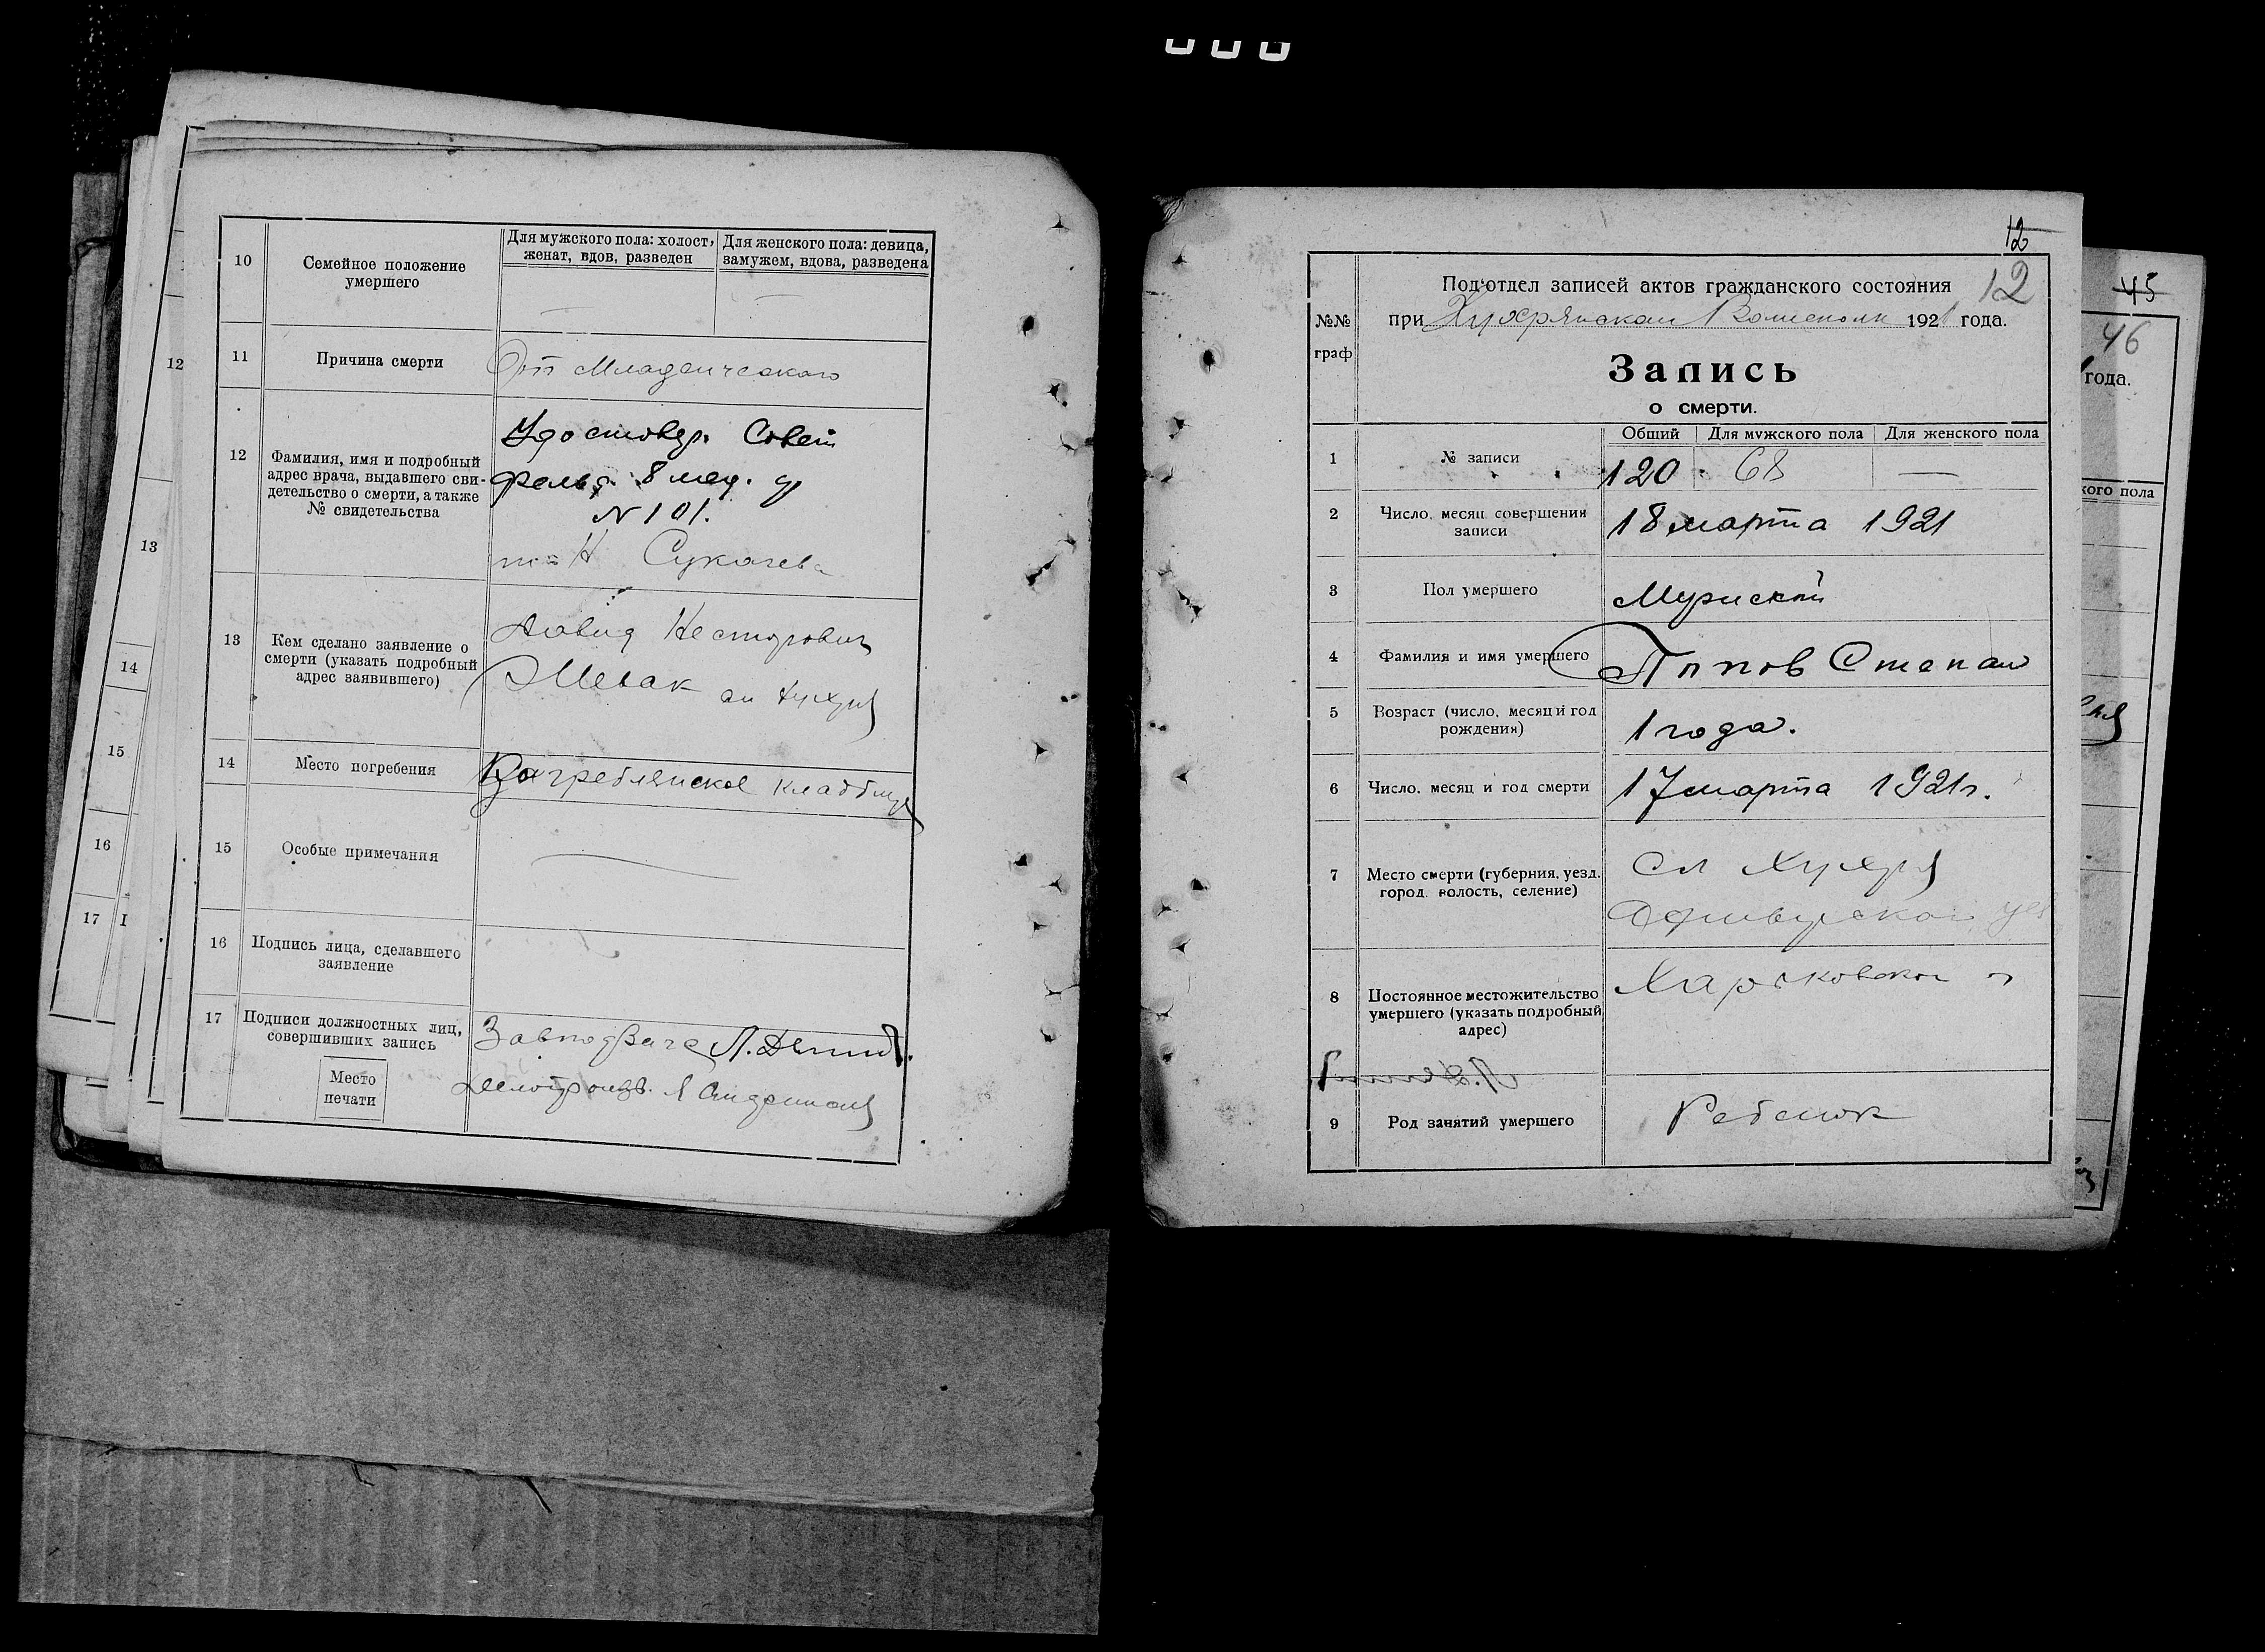 12
13
14
15
16
17 I
10 Семейное положение
умершего
Для мужского пола: холост,
женат, вдов, разведен
Для женского пола: девица,
замужем, вдова, разведена
— —
11 Причина смерти
От Младенческого
12 Фамилия, имя и подробный
адрес врача, выдавшего сви-
детельство о смерти, а также
№ свидетельства
Удостовер. Совет
фельд. 8 мед. у
N 101.
Н Сукачева
13 Кем сделано заявление о
смерти (указать подробный
адрес заявившего)
Давид Несторович
Шевак
14 Место погребения
кладбище
15 Особые примечания
—
16 Подпись лица, сделавшего
заявление
17 Подписи должностных лиц,
совершивших запись
Место
печати
Завподзагс Л.
Делопроизв. Я
12
Под‘отдел записей актов гражданского состояния 12
№№
граф
при Хухрянском Волисполк 1921 года.
Запись
о смерти.
Общий Для мужского пола Для женского пола
1 № записи 120 68 —
2 Число, месяц совершения
записи
18 марта 1921
3 Пол умершего Мужской
4 Фамилия и имя умершего Попов Степан
5 Возраст (число, месяц и год
рождения)
1 года.
6 Число, месяц и год смерти 17 марта 1921 г.
7 Место смерти (губерния, уезд,
город, волость, селение)
Сл Хухря
уез
8 Постоянное местожительство
умершего (указать подробный
адрес)
Харьковской г
9 Род занятий умершего Ребенок
45
46
года.
кого пола